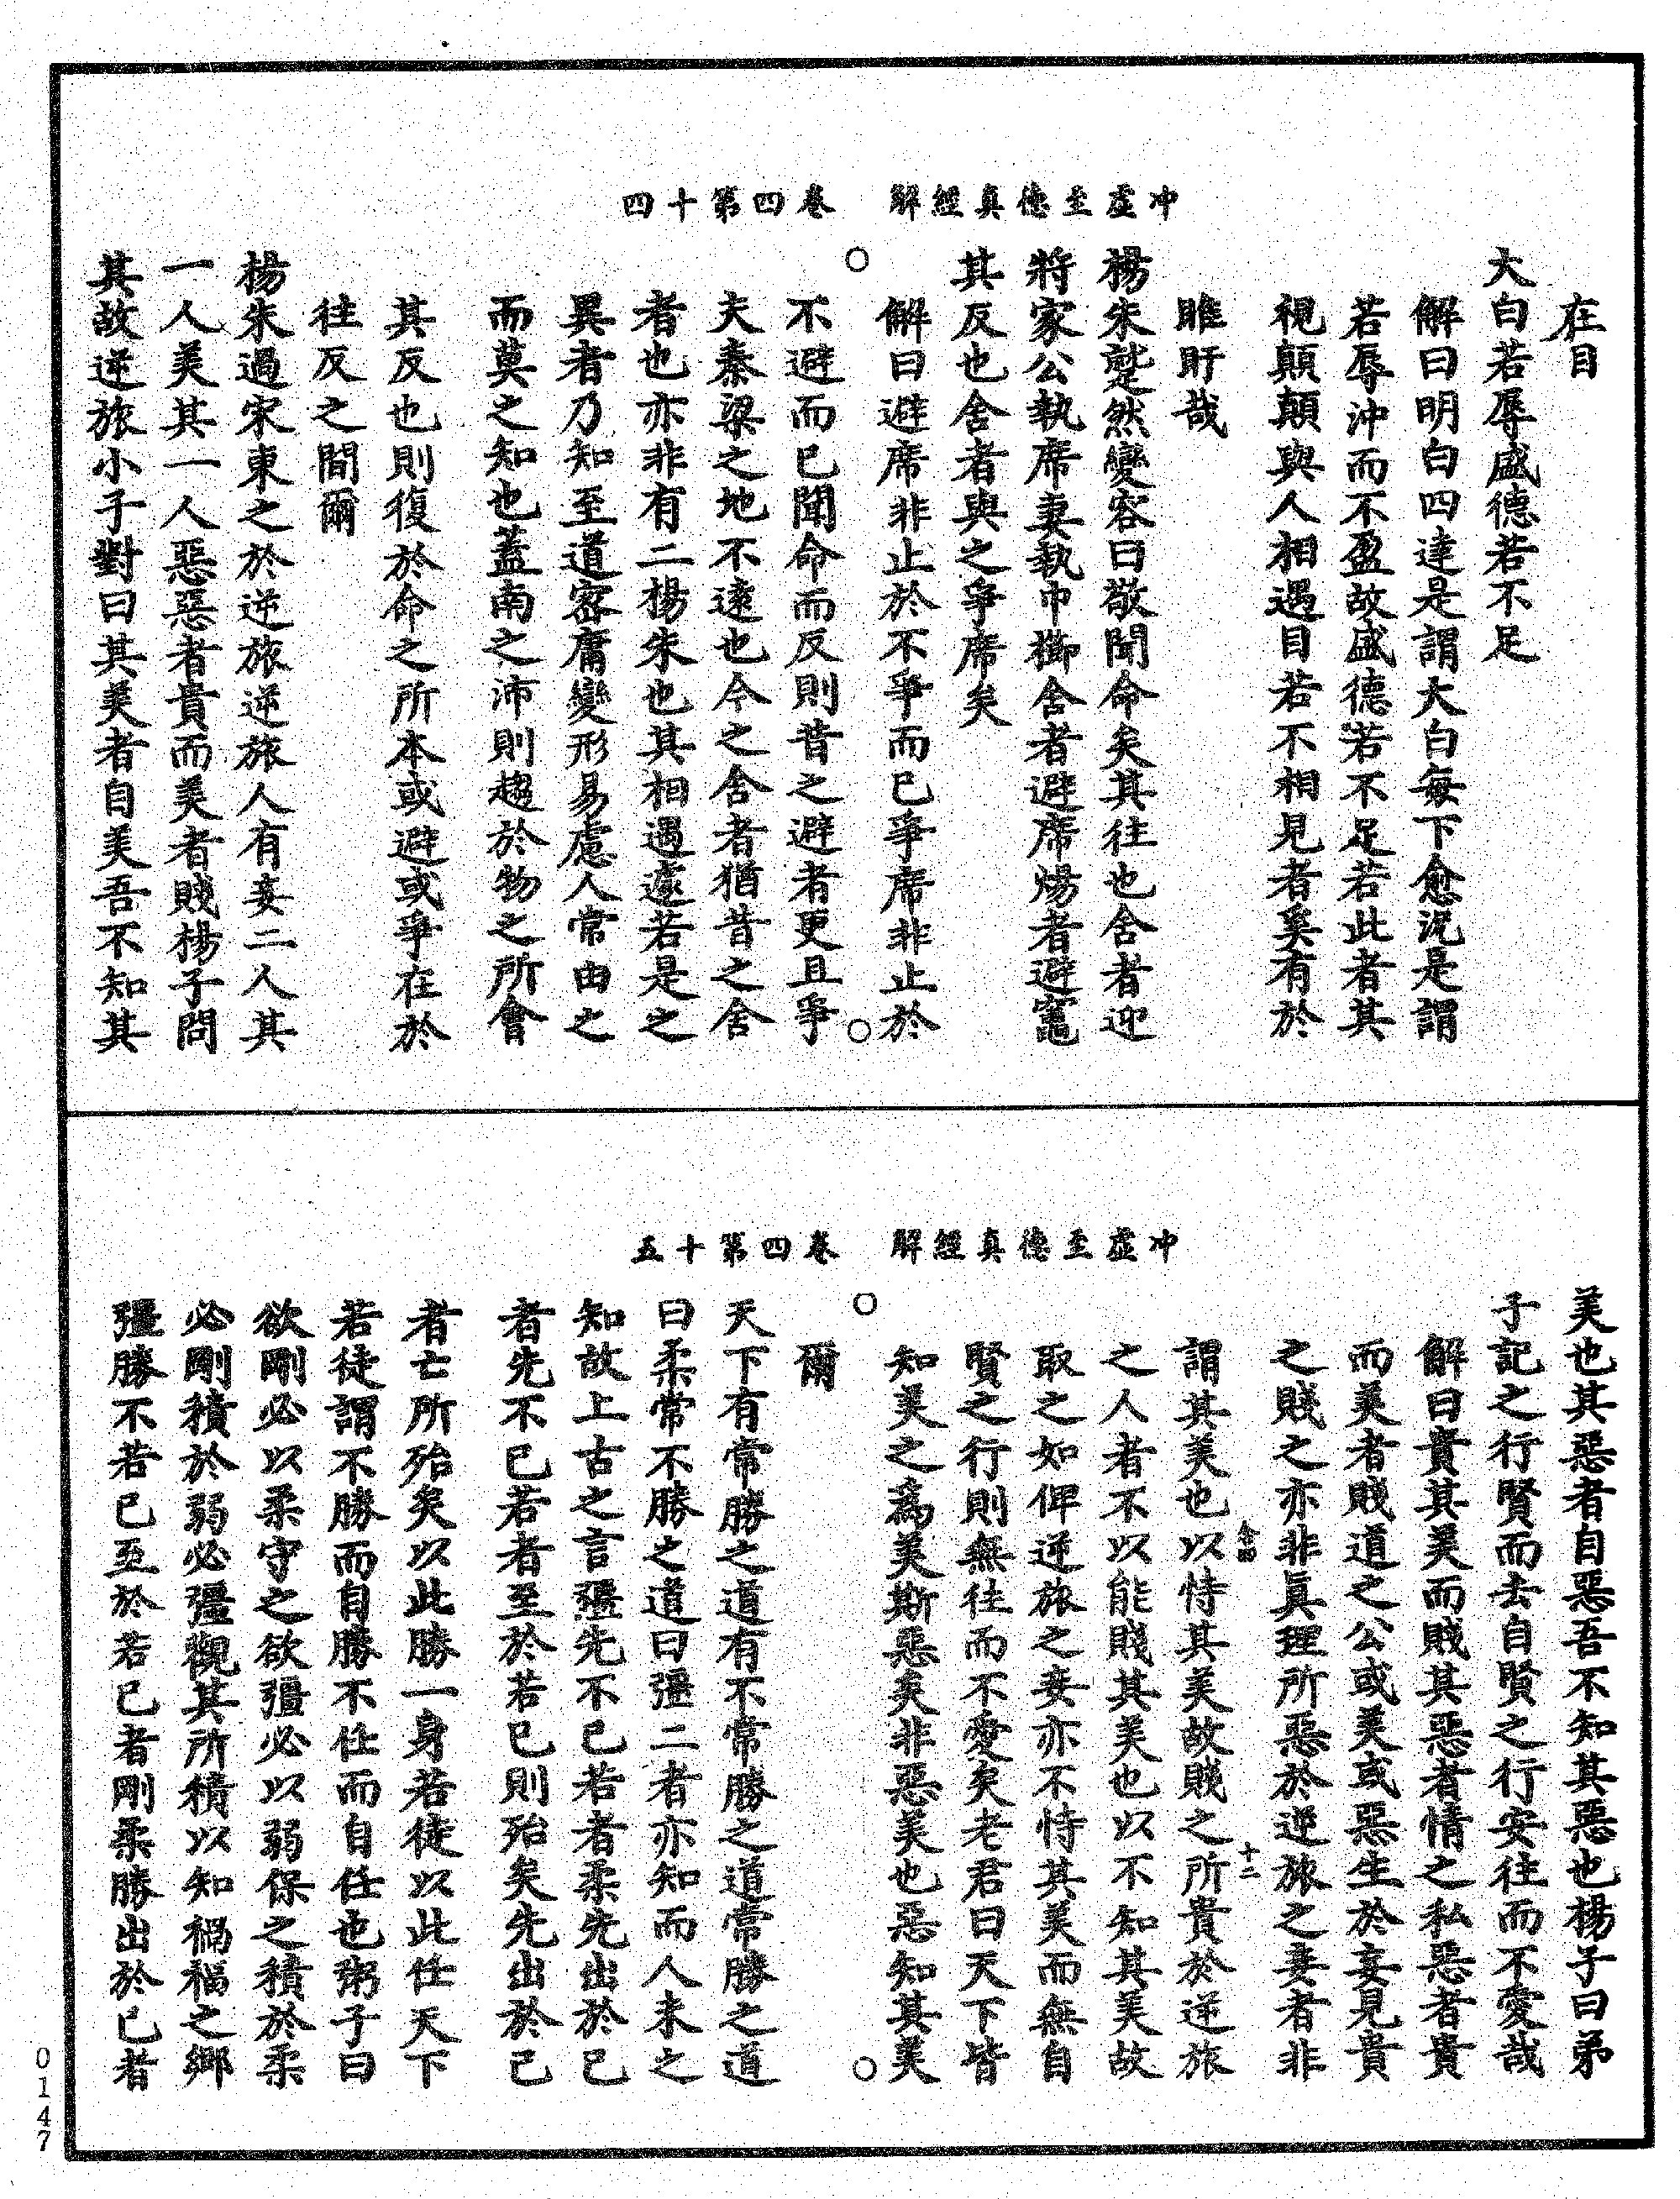 冲虛至德真經解　卷四第十四
在目
大白若辱盛德若不足
解曰明白四達是謂大白每下愈況是謂
若辱沖而不盈故盛德若不足若此者其
視顛顛與人相遇目若不相見者奚有於
睢盱哉
楊朱蹵然變容曰敬聞命矣其往也舍者迎
將家公執席妻執巾櫛舍者避席煬者避竈
其反也舍者與之爭席矣
解曰避席非止於不爭而已爭席非止於
不避而已聞命而反則昔之避者更且爭
夫秦梁之地不遠也今之舍者猶昔之舍
者也亦非有二楊朱也其相遇遽若是之
異者乃知至道密庸變形易慮人常由之
而莫之知也蓋南之沛則趨於物之所會
其反也則復於命之所本或避或爭在於
往反之間爾
楊朱過宋東之於逆旅逆旅人有妾二人其
一人美其一人惡惡者貴而美者賤楊子問
其故逆旅小子對曰其美者自美吾不知其
冲虛至德真經解　卷四第十五
美也其惡者自惡吾不知其惡也楊子曰弟
子記之行賢而去自賢之行安往而不愛哉
解曰貴其美而賤其惡者情之私惡者貴
而美者賤道之公或美或惡生於妄見貴
之賤之亦非真理所惡於逆旅之妻者非
謂其美也以恃其美故賤之所貴於逆旅
之人者不以能賤其美也以不知其美故
取之如俾逆旅之妾亦不恃其美而無自
賢之行則無往而不愛矣老君曰天下皆
知美之為美斯惡矣非惡美也惡知其美
爾
天下有常勝之道有不常勝之道常勝之道
曰柔常不勝之道曰彊二者亦知而人未之
知故上古之言彊先不已若者柔先出於已
者先不已若者至於若已則殆矣先出於己
者亡所殆矣以此勝一身若徒以此任天下
若徒謂不勝而自勝不任而自任也粥子曰
欲剛必以柔守之欲彊必以弱保之積於柔
必剛積於弱必彊觀其所積以知禍福之鄉
彊勝不若已至於若已者剛柔勝出於已者
十二
0147